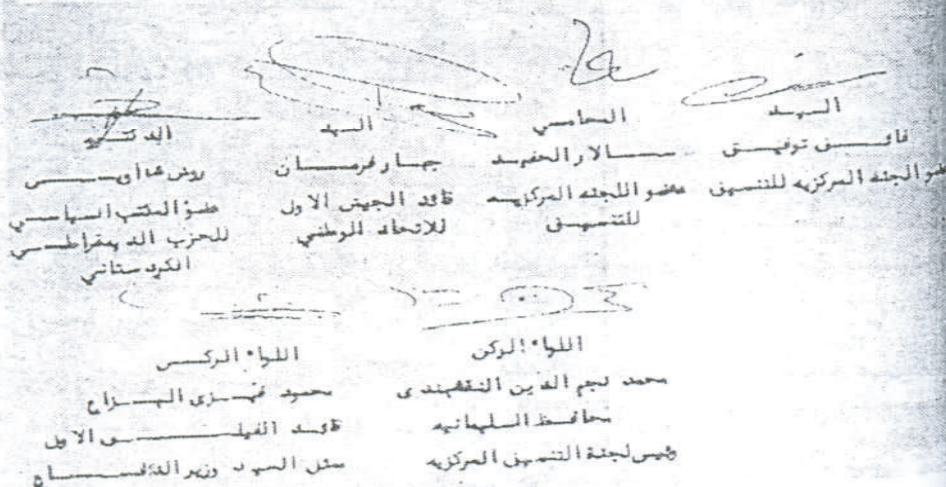 السيد
فائق توفيق
عضو الجنه المركزيه للتنسيق
المحامي
سالار الحفيد
عضو اللجنه المركزيه
للتنسيق
السيد
جبار فرمان
قائد الجيش الاول
للاتحاد الوطني
الدكتور
روش شاويس
عضو المكتب السياسي
للحزب الديمقراطي
الكردستاني
اللواء الركن
محمد نجم الدين النقشبندى
محافظ السليمانيه
رئيس لجنة التنسيق المركزيه
اللواء الركن
محمود فيزى الهزاع
قائد الفيلق الاول
ممثل السيد وزير الدفاع